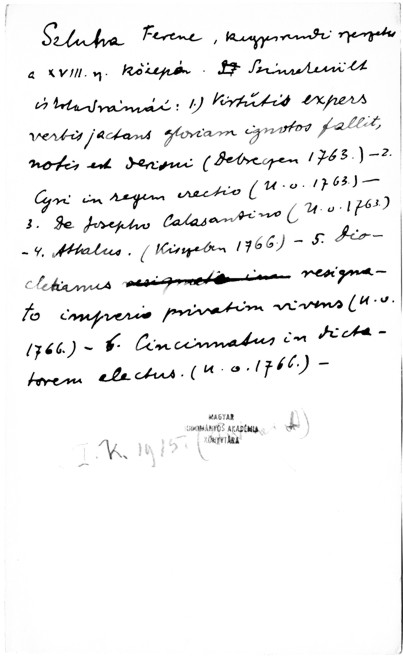 Szluha Ferenc, kegyesrendi szerzetes
a XVIII. sz. közepén. Színrekerült
iskoladrámái: 1.) Virtutis expers
verbis jactans gloriam ignotos fallit,
notis est derisui (Debreczen 1763.) – 2.
Cyri in regem erectio (U. o. 1763.) –
3. De Josepho Calasantino (U. o. 1763.)
– 4. Attalus. (Kisszeben 1766.) – 5. Dio-
cletianus resigna-
to imperio privatim vivens (U. o.
1766.) – 6. Cincinnatus in dicta-
torem electus. (U. o. 1766.) –
MAGYAR
TUDOMÁNYOS AKADÉMIA
KÖNYVTÁRA
I. K. 1915. (